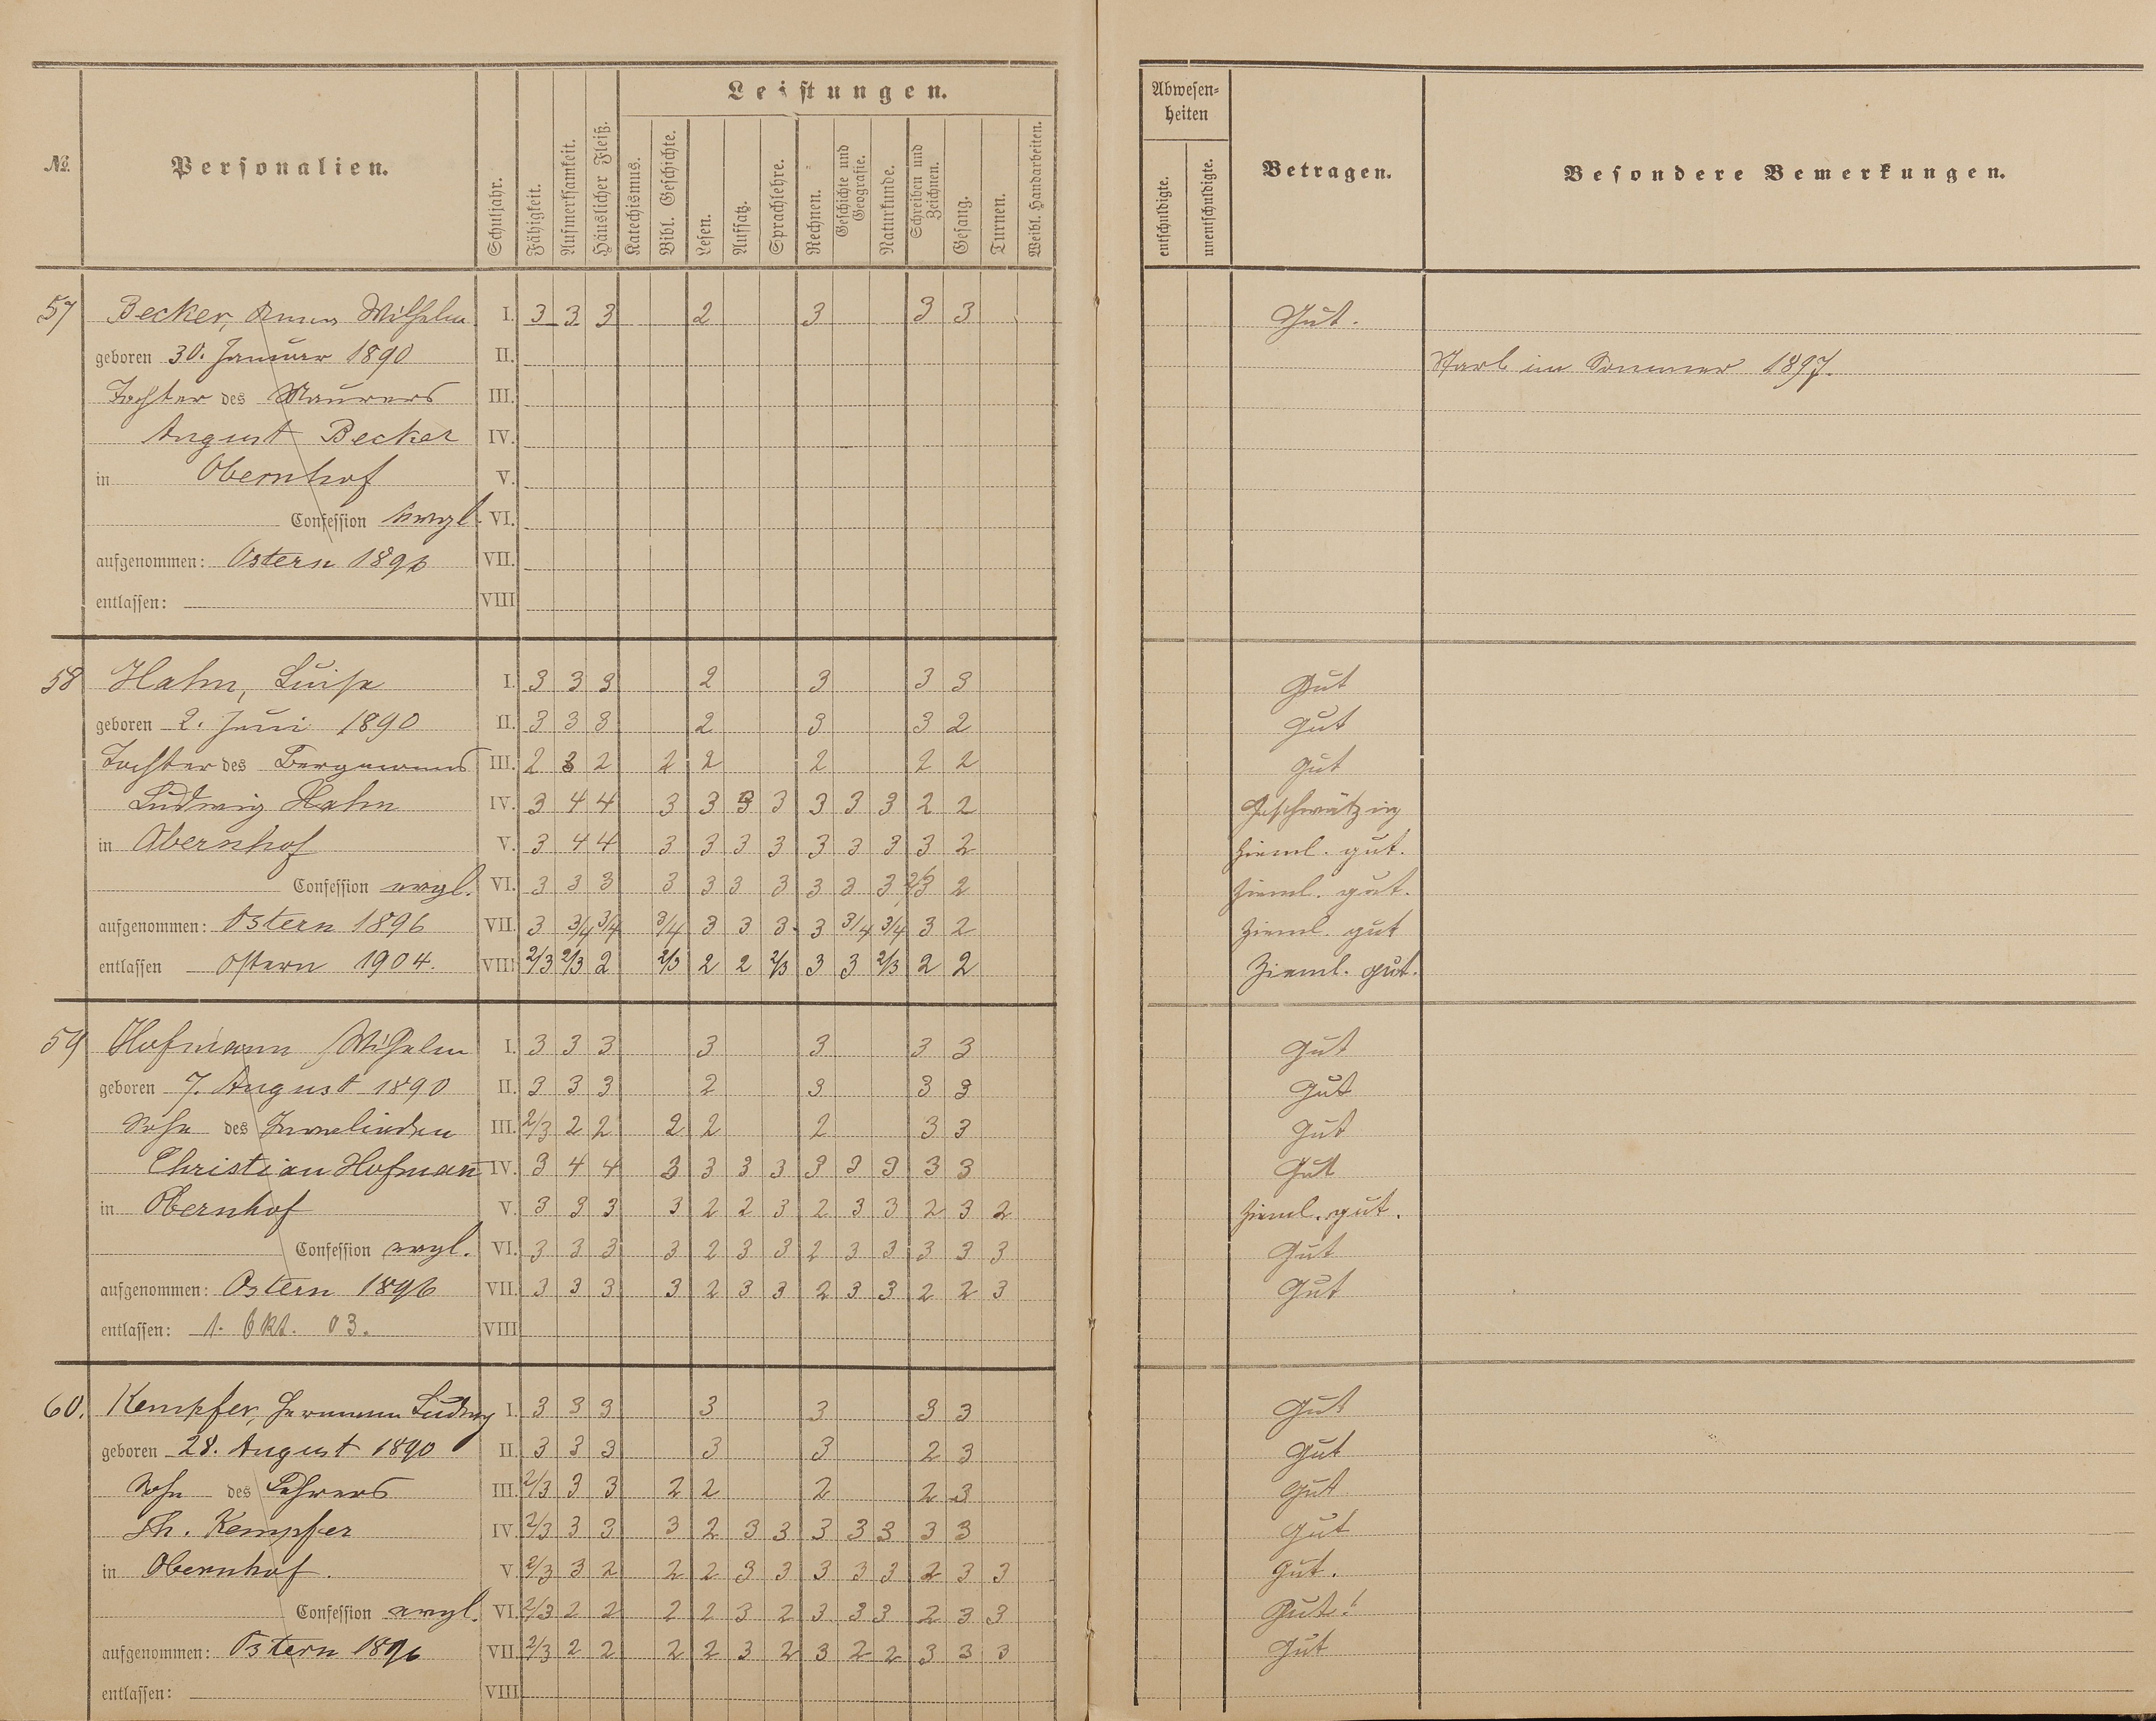 Leistungen.
Abwesen-
heiten
№ Personalien. Schuljahr. Fähigkeit. Aufmerksamkeit. Häuslicher Fleiß. Katechismus. Bibl. Geschichte. Lesen. Aufsatz. Sprachlehre. Rechnen. Geschichte und Geografie. Naturkunde. Schreiben und Zeichnen. Gesang. Turnen. Weibl. Handarbeiten. entschuldigte. unentschuldigte. Betragen. Besondere Bemerkungen.
57 Becker, Wilhelm I. 3 3 3 2 3 3 3 Gut.
geboren 30. Januar 1890 II. Starb im Sommer 1897.
Tochter des Maurers III.
August Becker IV.
in Obernhof V.
Confession evgl. VI.
aufgenommen: Ostern 1896 VII.
entlassen: VIII
58 Hahn, Luise I. 3 3 3 2 3 3 3 Gut
geboren 2. Juni 1890 II. 3 3 3 2 3 3 2 Gut
Tochter des Bergmanns III. 2 3 2 2 2 2 2 2 Gut
Ludwig Hahn IV. 3 4 4 3 3 3 3 3 3 3 2 2 Geschwätzig
in Obernhof V. 3 4 4 3 3 3 3 3 3 3 3 2 Zieml. gut.
Confession evgl. VI. 3 3 3 3 3 3 3 3 3 3 2/3 2 Zieml. gut.
aufgenommen: Ostern 1896 VII. 3 3/4 3/4 3/4 3 3 3 3 3/4 3/4 3 2 Zieml. gut
entlassen Ostern 1904. VIII 2/3 2/3 2 2/3 2 2 2/3 3 3 2/3 2 2 Zieml. gut.
59 Hofmann, Wilhelm I. 3 3 3 3 3 3 3 Gut
geboren 7. August 1890 II. 3 3 3 2 3 3 3 Gut
Sohn des III. 2/3 2 2 2 2 2 3 3 Gut
Christian Hofmann IV. 3 4 4 3 3 3 3 3 3 3 3 3 Gut
in Obernhof V. 3 3 3 3 2 2 3 2 3 3 2 3 2 Zieml. gut.
Confession evgl. VI. 3 3 3 3 2 3 3 2 3 3 3 3 3 Gut
aufgenommen: Ostern 1896 VII. 3 3 3 3 2 3 3 2 3 3 2 2 3 Gut
entlassen: 1. Okt. 03. VIII
60. Kempfer, Hermann Ludwig I. 3 3 3 3 3 3 3 Gut
geboren 28. August 1890 II. 3 3 3 3 3 2 3 Gut
Sohn des Lehrers III. 2/3 3 3 2 2 2 2 3 Gut
Th. Kempfer IV. 2/3 3 3 3 2 3 3 3 3 3 3 3 Gut
in Obernhof. V. 2/3 3 2 2 2 3 3 3 3 3 2 3 3 Gut.
Confession evgl. VI. 2/3 2 2 2 2 3 2 3 3 3 2 3 3 Gut!
aufgenommen: Ostern 1896 VII. 2/3 2 2 2 2 3 2 3 2 2 3 3 3 Gut
entlassen: VIII